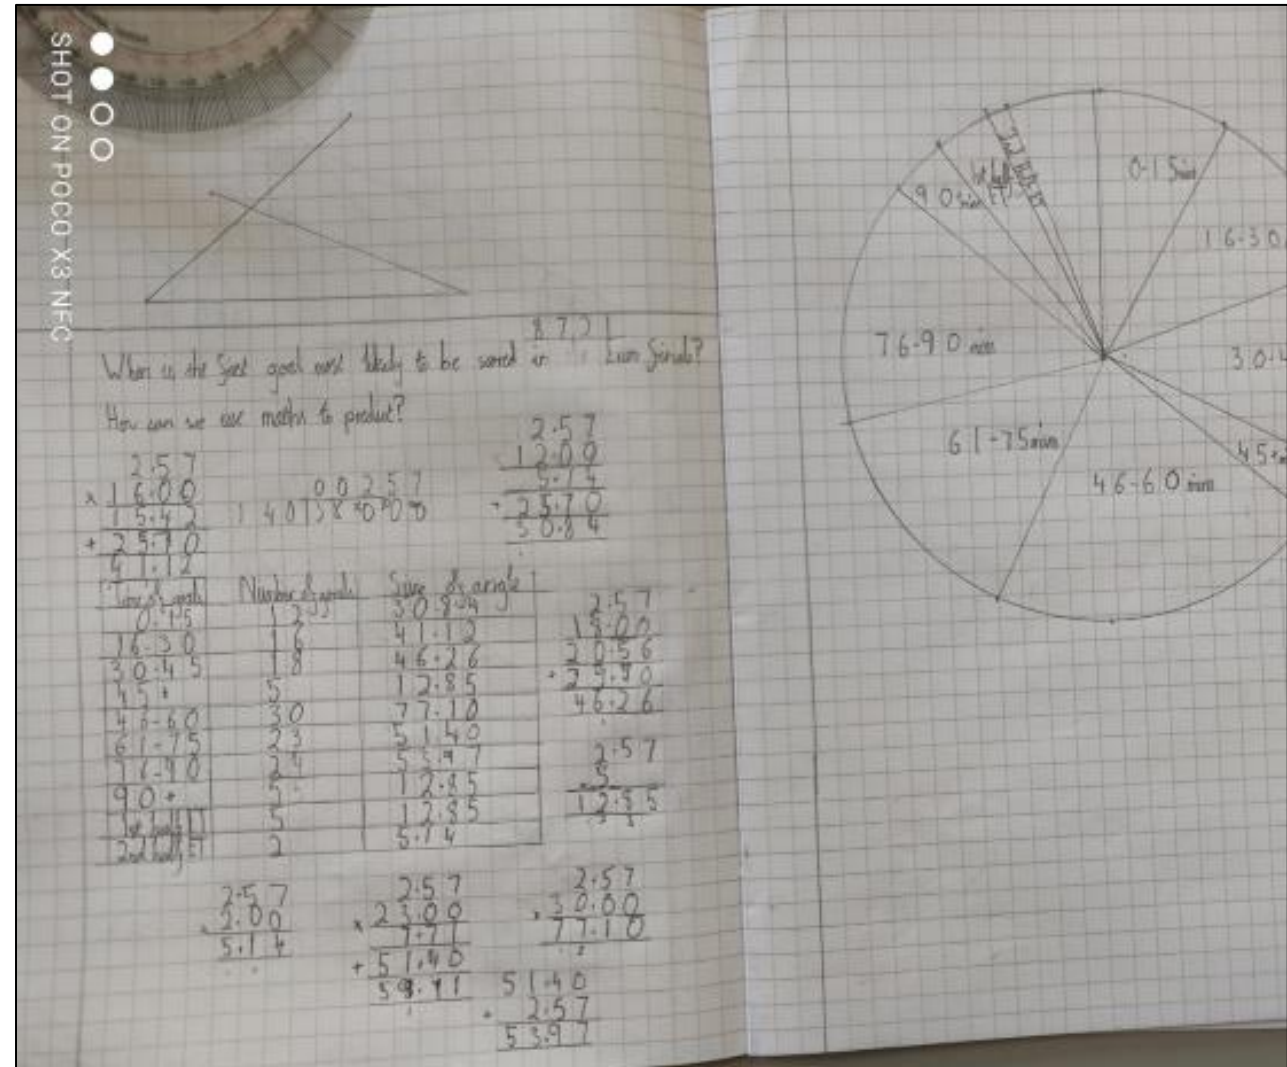 SHOT ON POCO X3 NFC
When is the goal most likely to be scored in Euro finals?
How can we use maths to predict?
2.57
× 16.00
15.42
+ 25.70
41.12
00257
140
2.57
12.00
5.14
+ 25.70
30.84
Time of goals Number of goals Size of angle
0-15 12 30.84
16-30 16 41.12
30-45 18 46.26
45+ 5 12.85
46-60 30 77.10
61-75 23 51.40
76-90 53.97
90+ 5 12.85
1st half ET 5 12.85
2nd half ET 2 5.14
2.57
18.00
20.56
46.26
2.57
5
12.85
2.57
2.00
5.14
2.57
× 23.00
7.71
+ 51.40
2.57
30.00
77.10
51.40
2.57
53.97
0-15min
16-30
30-4
45+m
46-60 min
61-75min
76-90 min
90min
1st half